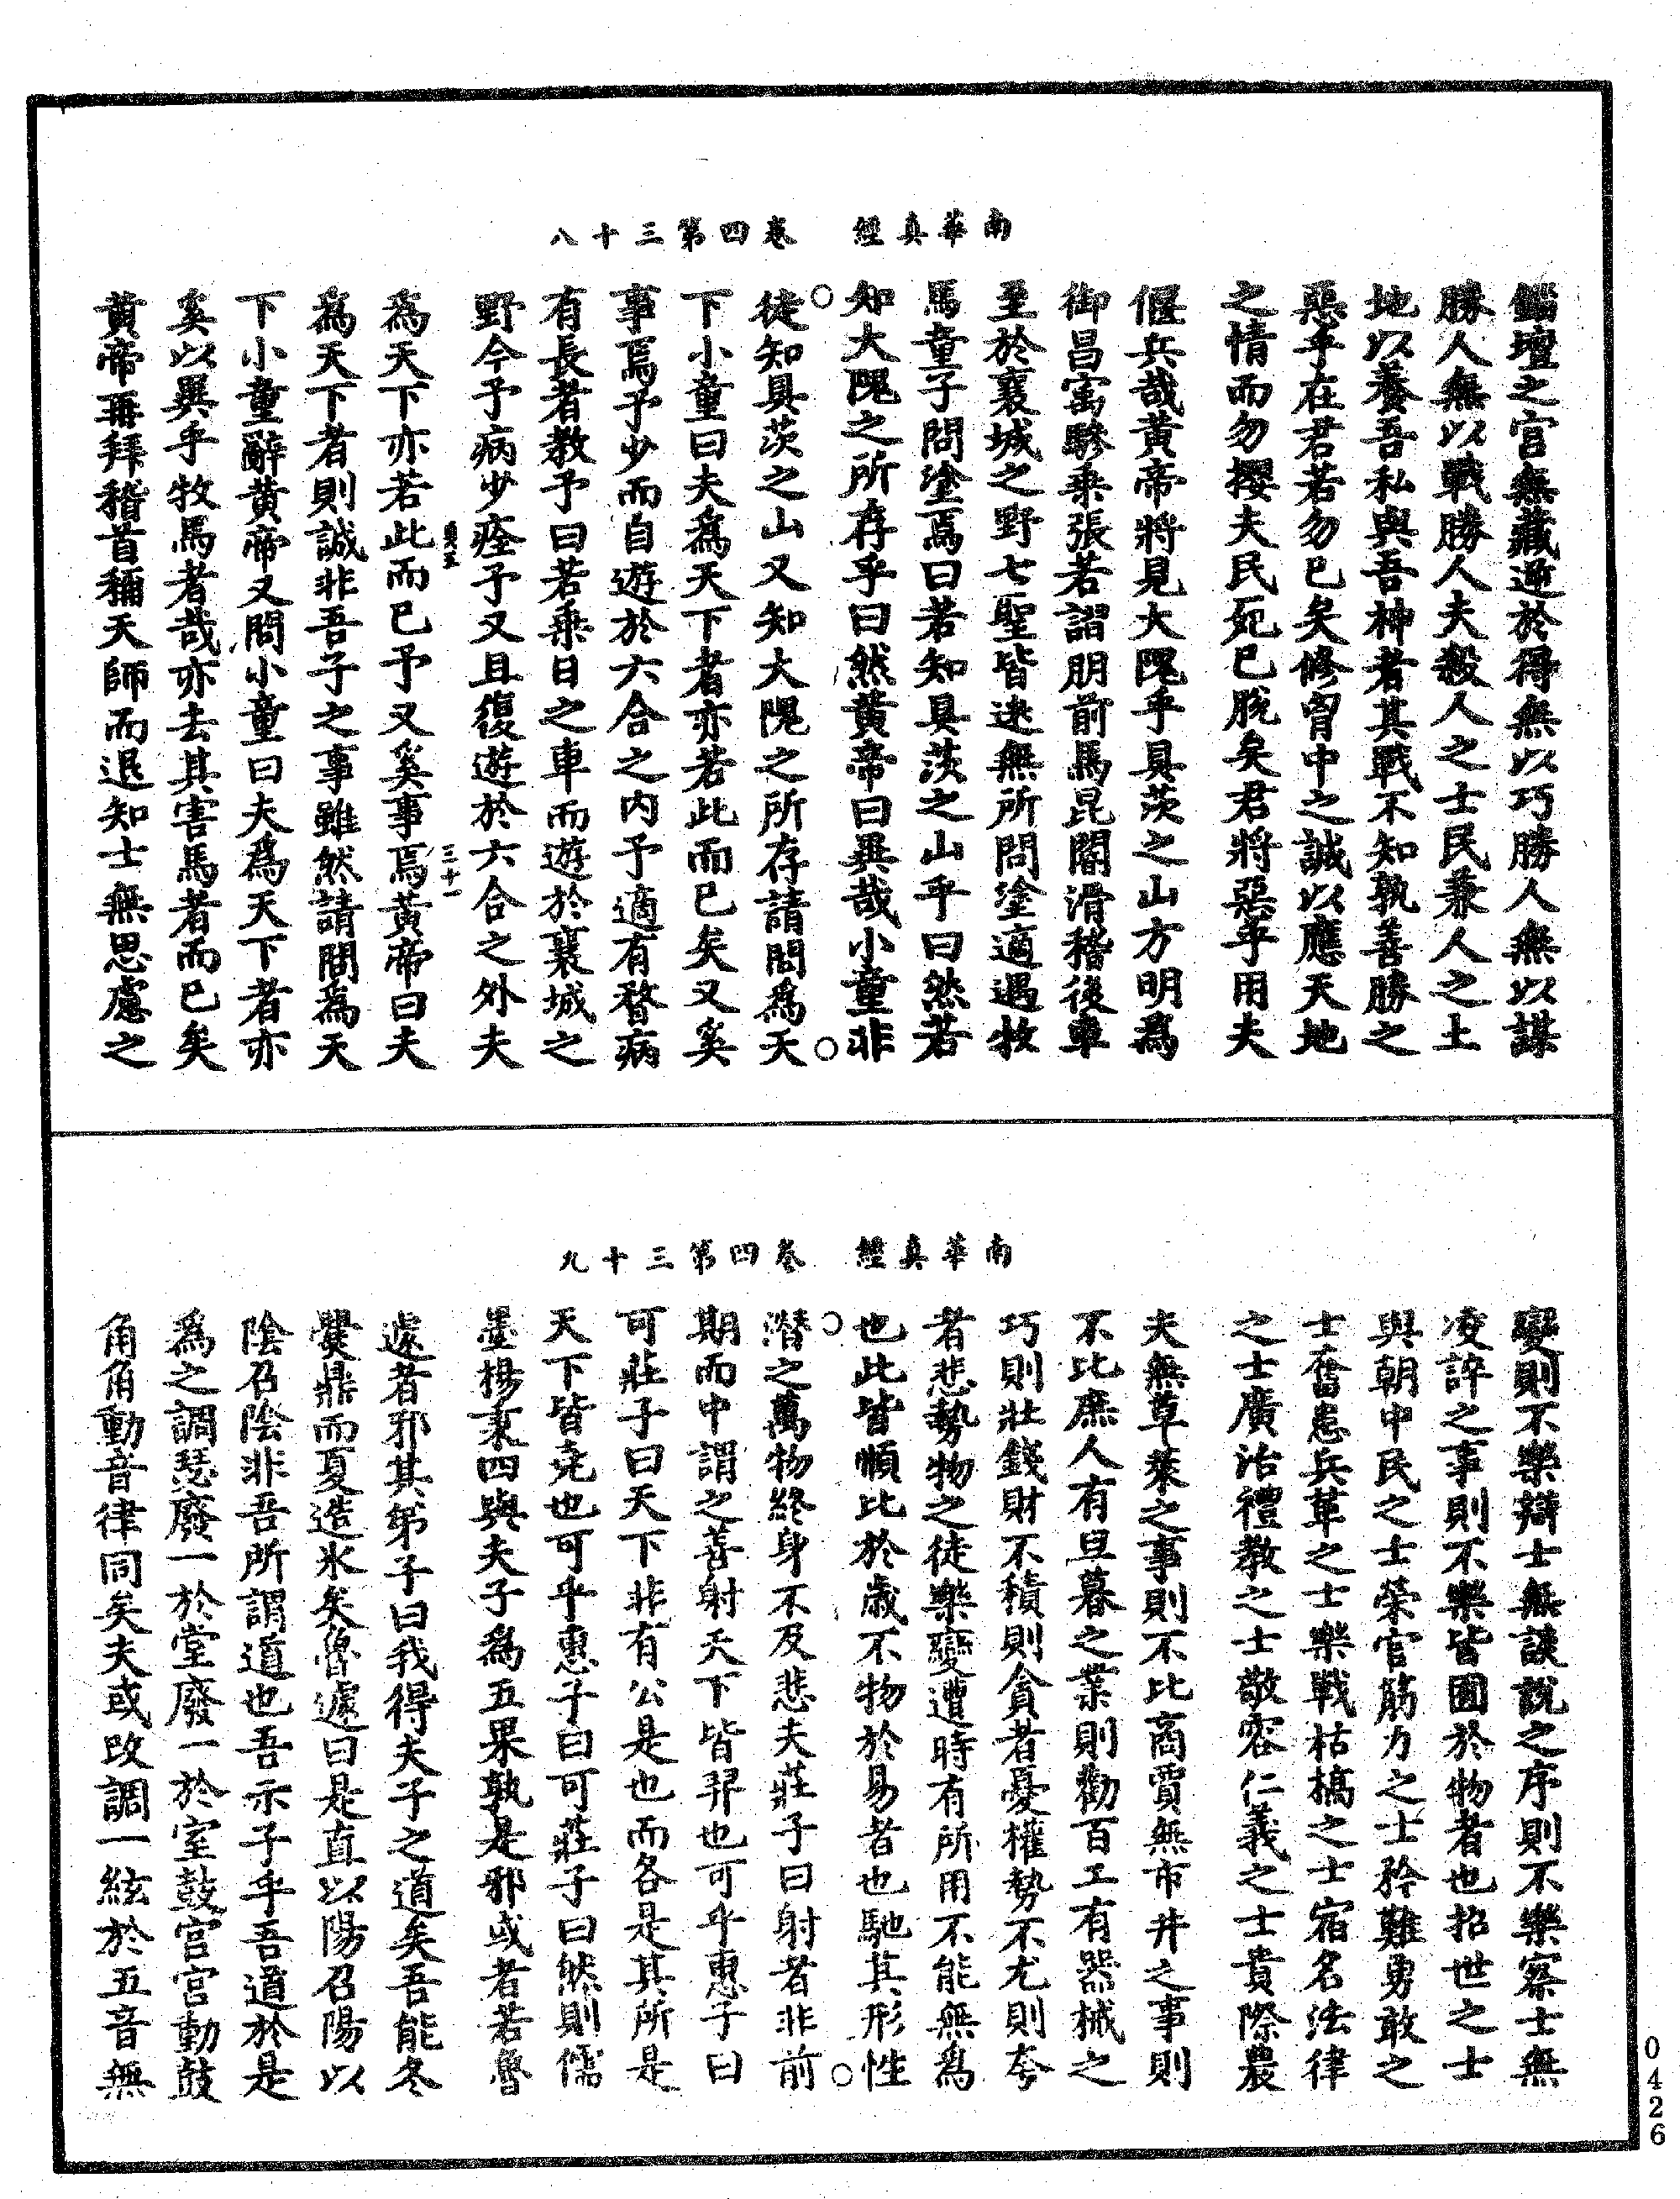 南華真經　卷四第三十八
錙壇之宮無藏逆於得無以巧勝人無以謀
勝人無以戰勝人夫殺人之士民兼人之土
地以養吾私與吾神者其戰不知孰善勝之
惡乎在君若勿已矣修胷中之誠以應天地
之情而勿攖夫民死已脫矣君將惡乎用夫
偃兵哉黃帝將見大隗乎具茨之山方明為
御昌㝢驂乗張若謵朋前馬昆閽滑稽後車
至於襄城之野七聖皆迷無所問塗適遇牧
馬童子問塗焉曰若知具茨之山乎曰然若
知大隗之所存乎曰然黃帝曰異哉小童非
徒知具茨之山又知大隗之所存請問為天
下小童曰夫為天下者亦若此而已矣又奚
事焉予少而自遊於六合之内予適有瞀病
有長者教予曰若乗日之車而遊於襄城之
野今予病少痊予又且復遊於六合之外夫
三十一
為天下亦若此而已予又奚事焉黃帝曰夫
為天下者則誠非吾子之事雖然請問為天
下小童辭黃帝又問小童曰夫為天下者亦
奚以異乎牧馬者哉亦去其害馬者而已矣
黃帝再拜稽首稱天師而退知士無思慮之
南華真經　卷四第三十九
變則不樂辯士無談說之序則不樂察士無
凌誶之事則不樂皆囿於物者也招世之士
興朝中民之士榮官筋力之士矜難勇敢之
士奮患兵革之士樂戰枯槁之士宿名法律
之士廣治禮教之士敬容仁義之士貴際農
夫無草萊之事則不比商賈無市井之事則
不比庶人有旦暮之業則勸百工有器械之
巧則壯錢財不積則貪者憂權勢不尤則夸
者悲勢物之徒樂變遭時有所用不能無為
也此皆順比於歲不物於易者也馳其形性
潛之萬物終身不反悲夫莊子曰射者非前
期而中謂之善射天下皆羿也可乎惠子曰
可莊子曰天下非有公是也而各是其所是
天下皆堯也可乎惠子曰可莊子曰然則儒
墨楊秉四與夫子為五果孰是邪或者若魯
遽者邪其弟子曰我得夫子之道矣吾能冬
爨鼎而夏造冰矣魯遽曰是直以陽召陽以
陰召陰非吾所謂道也吾示子乎吾道於是
為之調瑟廢一於堂廢一於室鼓宮宮動鼓
角角動音律同矣夫或改調一絃於五音無
0426